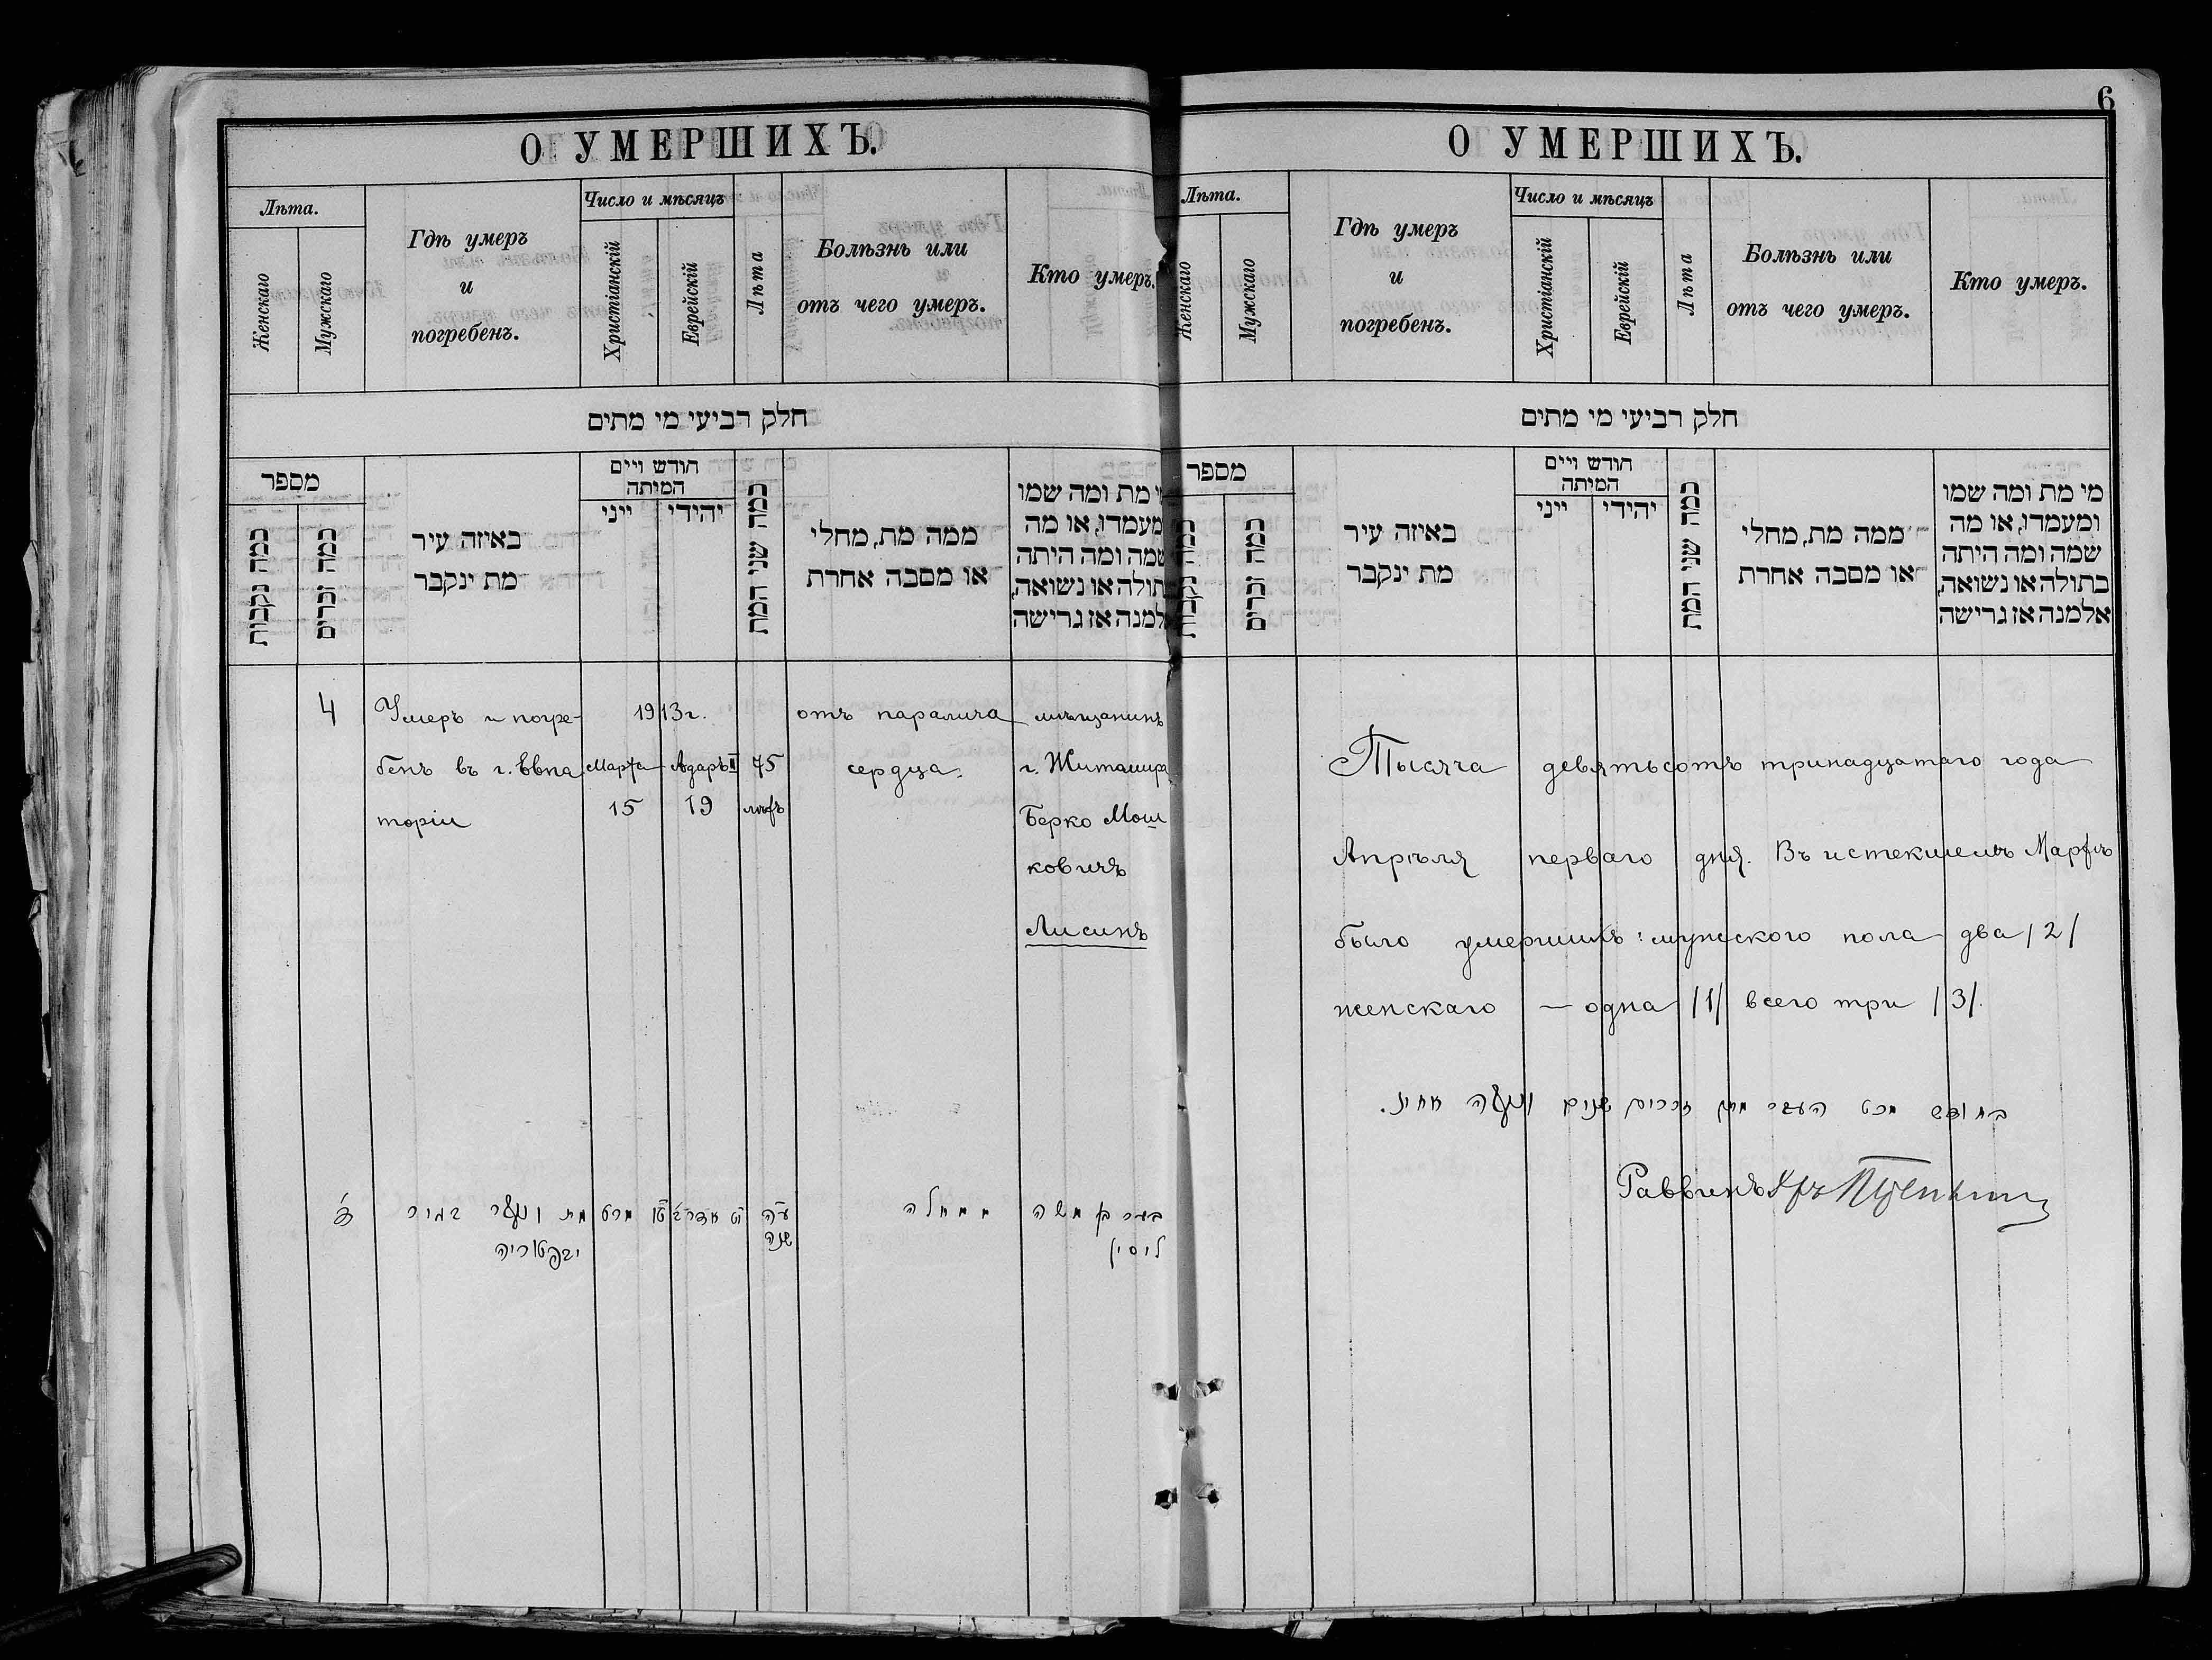 О УМЕРШИХЪ.
Лѣта.
Женскаго
Мужскаго
Гдѣ умеръ
и
погребенъ.
Число и мѣсяцъ
Христіанскій
Еврейскій
Лѣта
Болѣзнь или
отъ чего умеръ.
Кто умеръ.
חלק רביעי מי מתים
מספר
כמה נקבות
כמה זכרים
באיזה עיר
מת ינקבר
חודש ויים
המיתה
ייני
יהידי
כמה שני המת
ממה מת, מחלי
או מסבה אחרת
מי מת ומה שמו
ומעמדו, או מה
שמה ומה היתה
בתולה או נשואה,
אלמנה אז גרישה
4
Умеръ и погре-
бенъ въ г. Евпа
торіи
1913г.
Марта
15
Адаръ II
19
45
лѣтъ
отъ паралича
сердца.
мѣщанинъ
г. Житомира
Берко Мош
ковичъ
Лисинъ
מת ונקבר בעיר
יבפטוריה
טו מרט
יט אדר
עה
שנה
ממחלה
בער בן משה
ליסין
6
О УМЕРШИХЪ.
Лѣта.
Женскаго
Мужскаго
Гдѣ умеръ
и
погребенъ.
Число и мѣсяцъ
Христіанскій
Еврейскій
Лѣта
Болѣзнь или
отъ чего умеръ.
Кто умеръ.
חלק רביעי מי מתים
מספר
כמה נקבות
כמה זכרים
באיזה עיר
מת ינקבר
חודש ויים
המיתה
ייני
יהידי
כמה שני המת
ממה מת, מחלי
או מסבה אחרת
מי מת ומה שמו
ומעמדו, או מה
שמה ומה היתה
בתולה או נשואה,
אלמנה אז גרישה
Тысяча девятьсотъ тринадцатаго года
Апрѣля перваго дня. Въ истекшемъ Мартѣ
было умершихъ: мужского пола два /2/
женскаго — одна /1/ всего три /3/.
בחודש מרט העבר מתו זכרים שנים ונקבה אחת.
Раввинъ